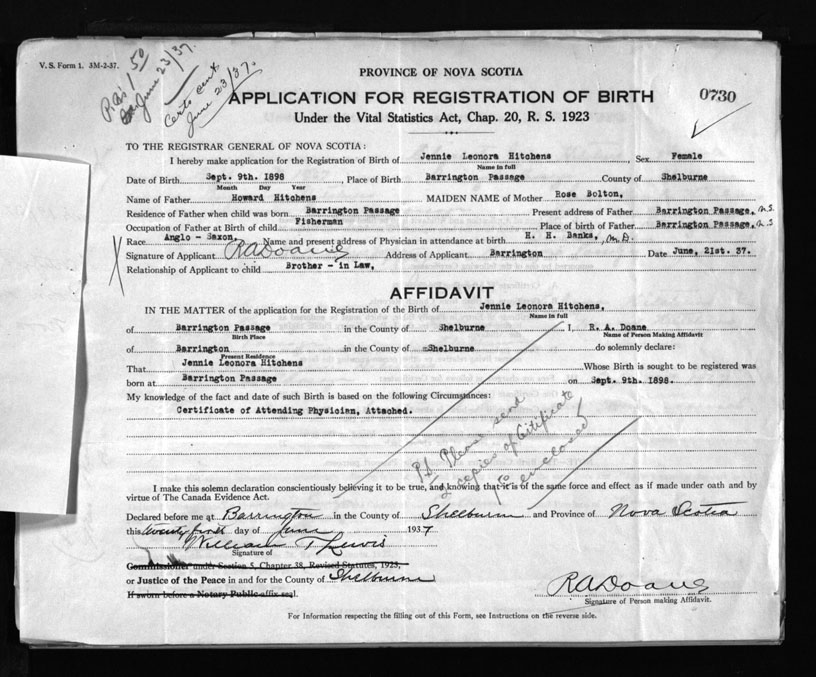 V. S. Form 1. 3M-2-37.
June 23/37.
Certs sent
June 23/37.
PROVINCE OF NOVA SCOTIA
APPLICATION FOR REGISTRATION OF BIRTH
0730
Under the Vital Statistics Act, Chap. 20, R. S. 1923
TO THE REGISTRAR GENERAL OF NOVA SCOTIA:
I hereby make application for the Registration of Birth of Jennie Leonora Hitchens, Sex Female
Name in full
Date of Birth Sept. 9th. 1898 Place of Birth Barrington Passage County of Shelburne
Month Day Year
Name of Father Howard Hitchens MAIDEN NAME of Mother Rose Bolton,
Residence of Father when child was born Barrington Passage Present address of Father Barrington Passage, N.S.
Occupation of Father at Birth of child Fisherman Place of birth of Father Barrington Passage, N.S
Race Anglo - Saxon, Name and present address of Physician in attendance at birth H. H. Banks, M.D.
Signature of Applicant R A Doane Address of Applicant Barrington Date June, 21st. 37.
Relationship of Applicant to child Brother - in Law,
AFFIDAVIT
IN THE MATTER of the application for the Registration of Birth of Jennie Leonora Hitchens,
Name in full
of Barrington Passage in the County of Shelburne I, R. A. Doane
Birth Place Name of Person Making Affidavit
of Barrington in the County of Shelburne do solemnly declare:
Present Residence
That Jennie Leonora Hitchens Whose Birth is sought to be registered was
born at Barrington Passage on Sept. 9th. 1898.
My knowledge of the fact and date of such Birth is based on the following Circumstances:
Certificate of Attending Physician, Attached.
Please send
2 copies of Certificate
enclosed
I make this solemn declaration conscientiously believing it to be true, and knowing that it is of the same force and effect as if made under oath and by
virtue of The Canada Evidence Act.
Declared before me at Barrington in the County of Shelburne and Province of Nova Scotia
this twenty first day of June 1937
William T Lewis
Signature of
Commissioner under Section 5, Chapter 38, Revised Statutes, 1923,
or Justice of the Peace in and for the County of Shelburne
If sworn before a Notary Public affix seal.
R A Doane
Signature of Person making Affidavit.
For Information respecting the filling out of this Form, see Instructions on the reverse side.